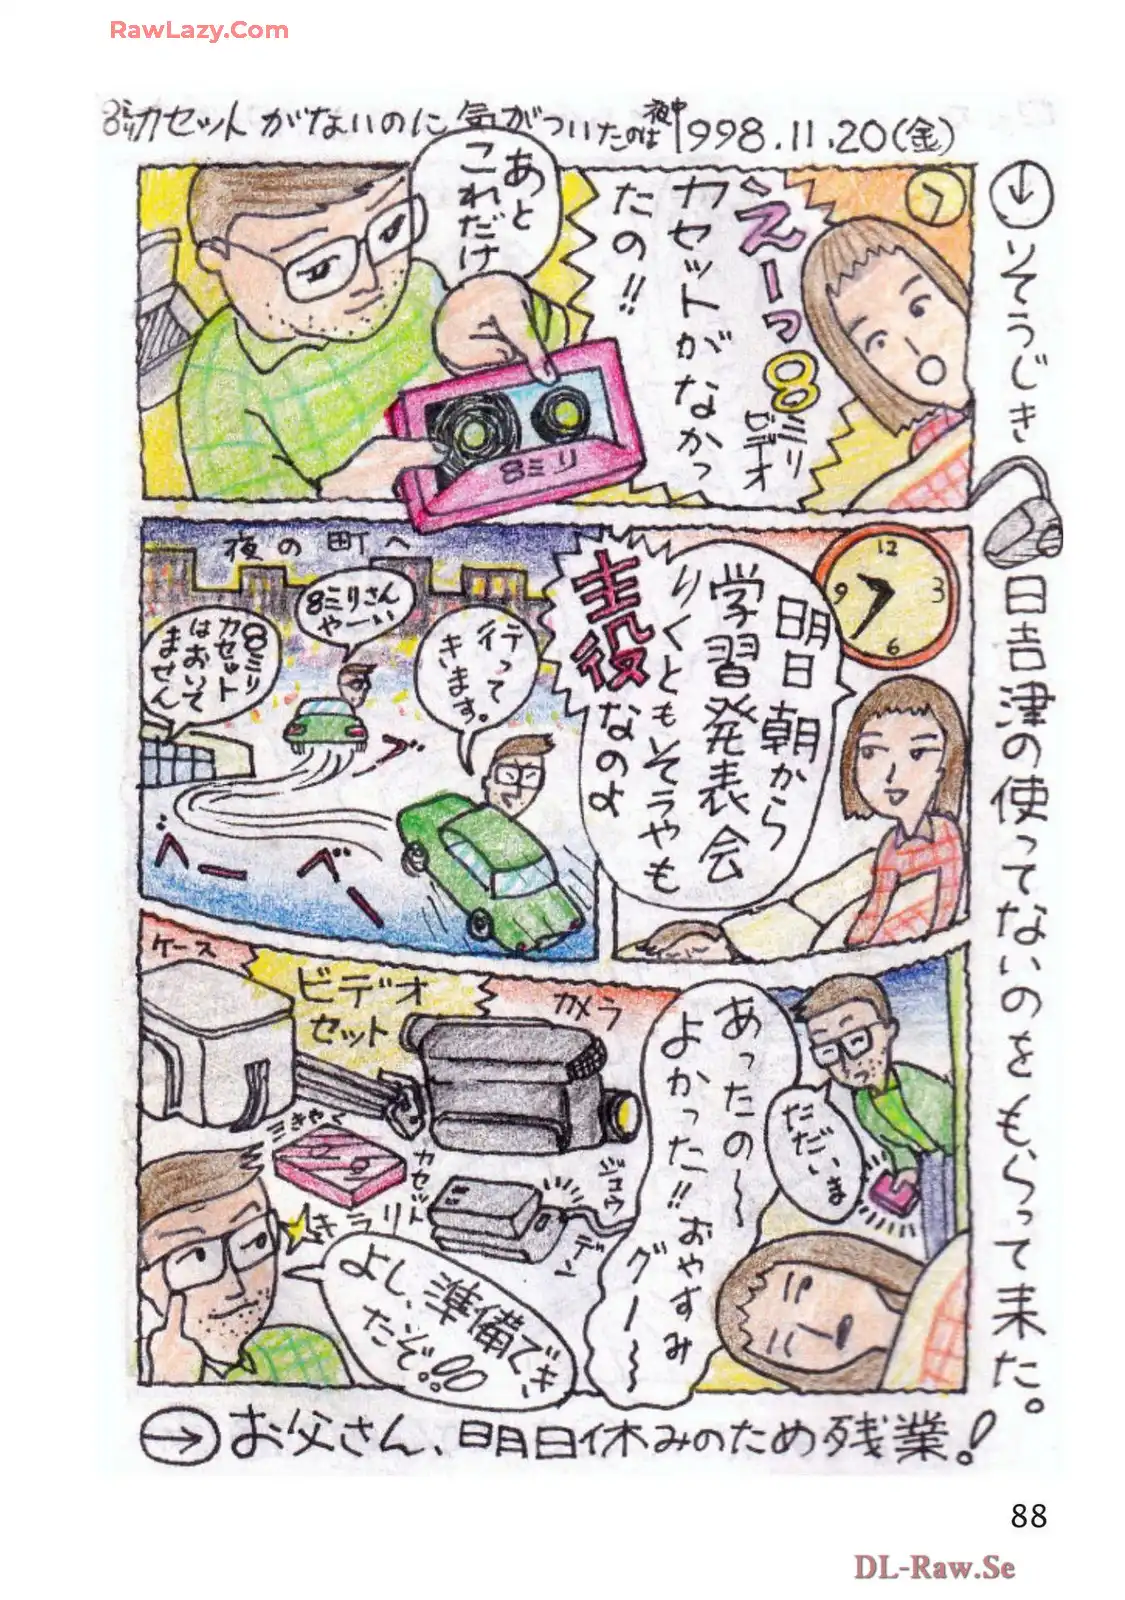 RawLazy.Com
8ミリカセットがないのに気がついたのは夜中
1998.11.20(金)
えーっ8ミリビデオ
カセットがなかっ
たの!!
あと
これだけ
8ミリ
12
3
6
9
明日朝から
学習発表会
りくともそらやも
主役なのよ
夜の町へ
行って
きます。
8ミリさん
やーい
8ミリ
カセット
はおいて
ません
ブ
ヘーベー
あったの〜
よかった!!おやすみ
グー〜
ただいま
ケース
ビデオ
セット
カメラ
さきやく
カセット
ジュウ
デン
キラリ
よし、準備でき
たぞ!!
↓そうじき
日吉津の使ってないのをもらって来た。
→お父さん、明日休みのため残業!
88
DL-Raw.Se